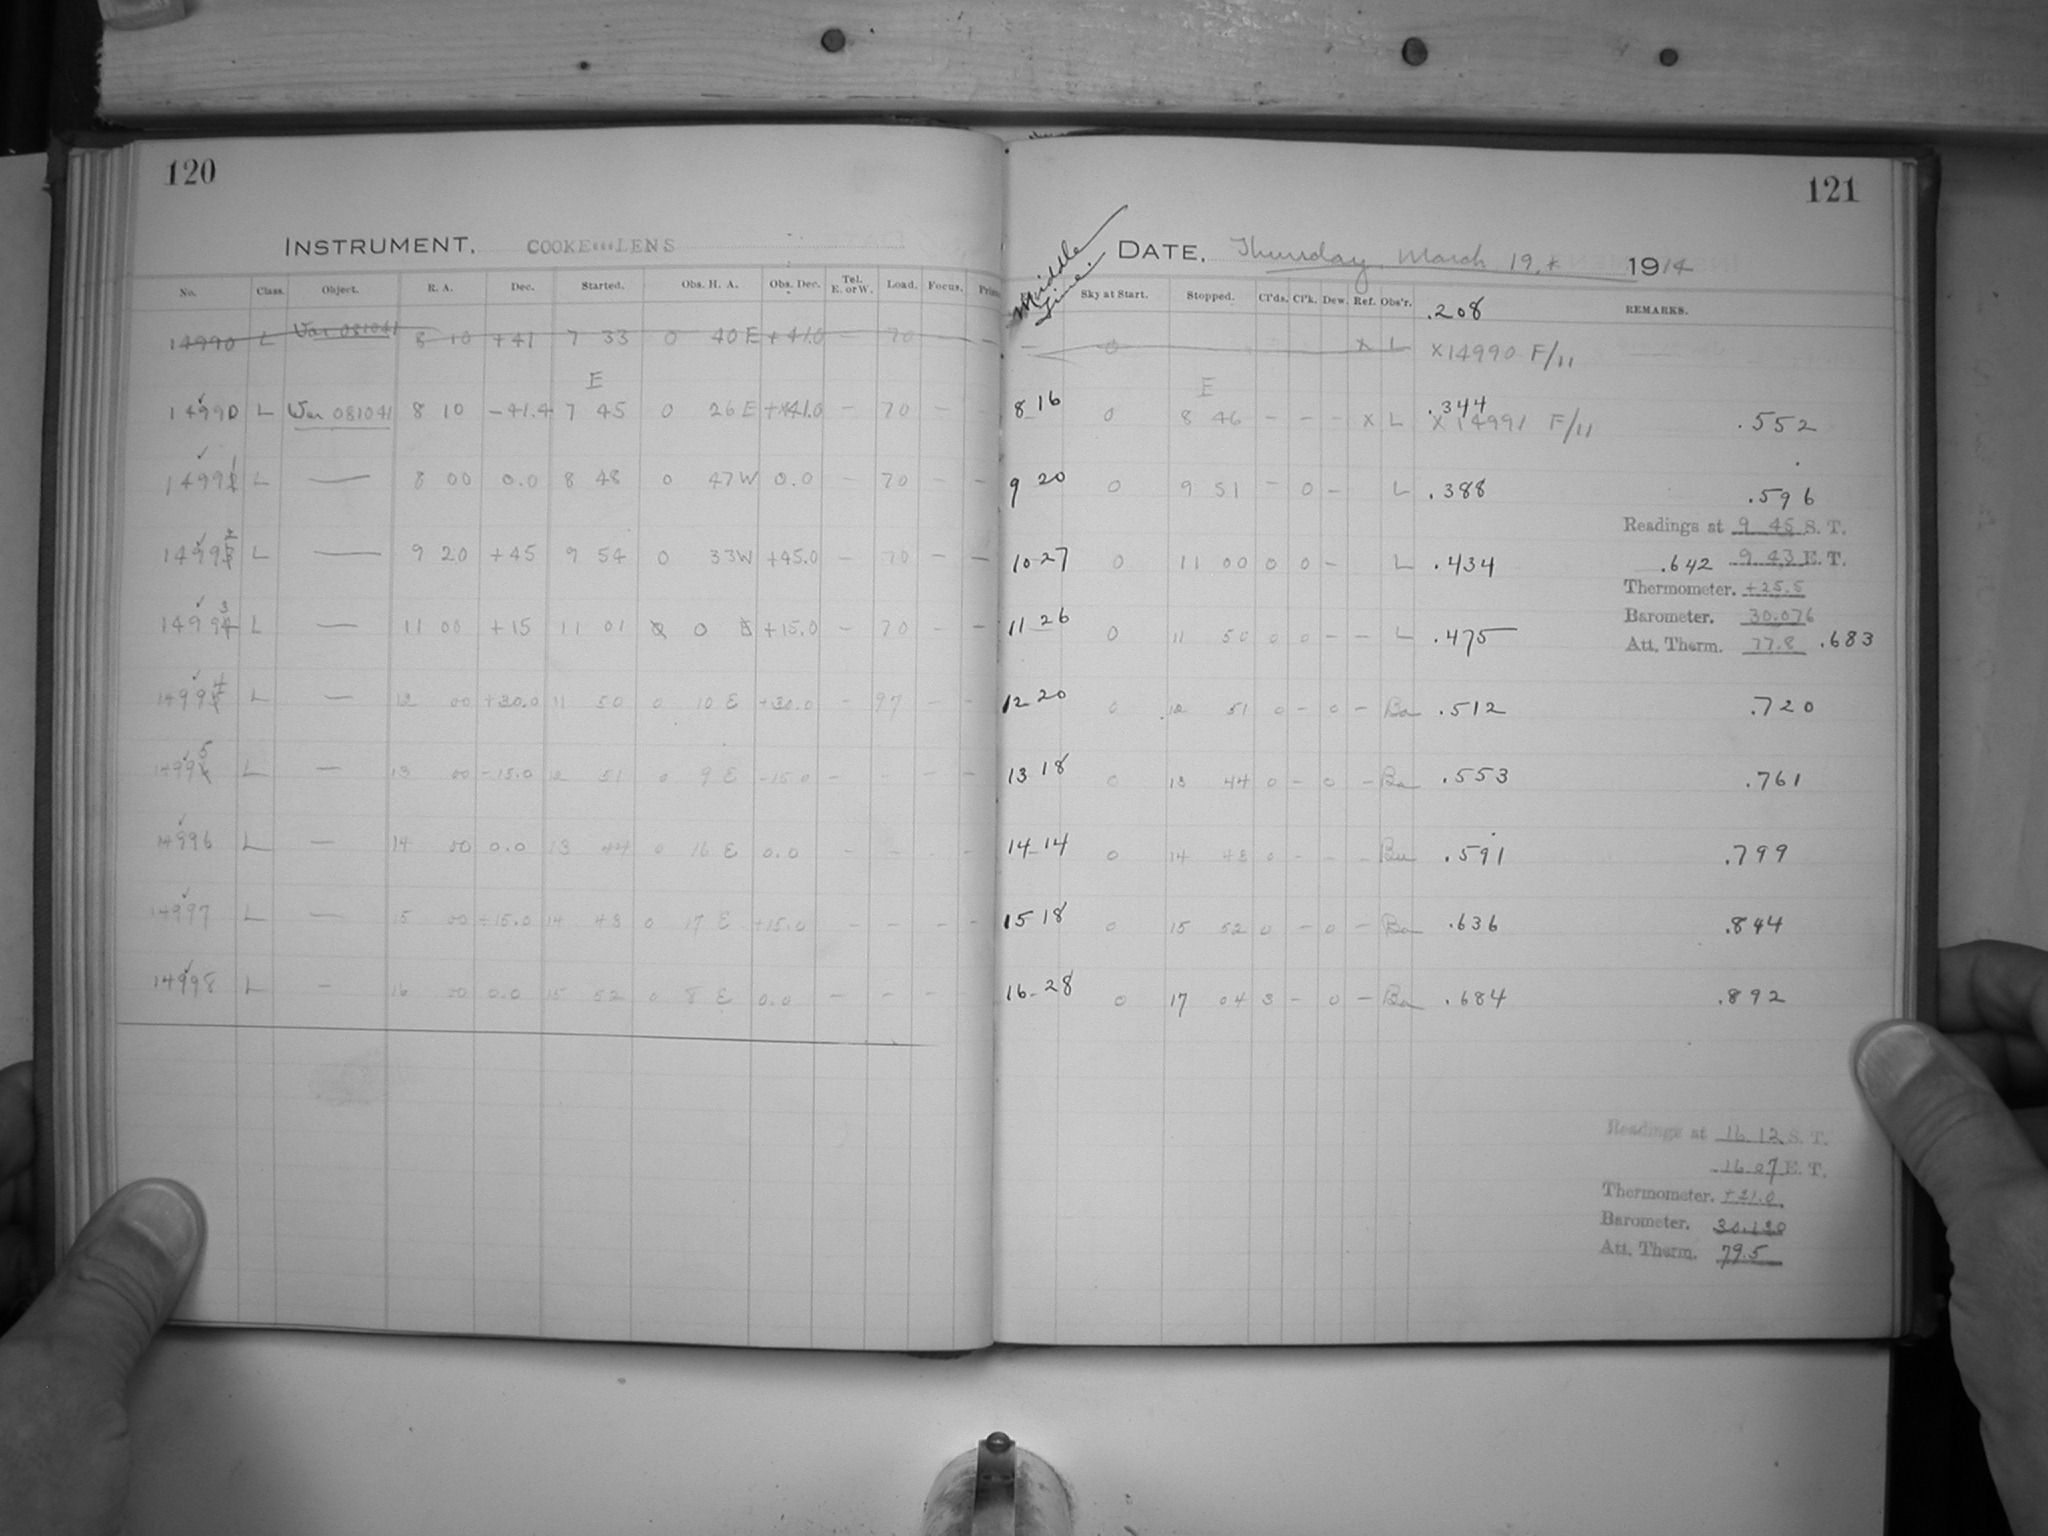 120
INSTRUMENT. COOKE LENS
No. Class. Object. R. A. Dec. Started. Obs. H. A. Obs. Dec. Tel. E. or W. Load. Focus.
14990 L Var 081041 8 10 +41 7 33 0 40 E +41.0 — 70 — —
E
14990 L Var 081041 8 10 -41.4 7 45 0 26 E +41.0 — 70 — —
14991 L — 8 00 0.0 8 48 0 47 W 0.0 — 70 — —
14992 L — 9 20 +45 9 54 0 33 W +45.0 — 70 — —
14993 L — 11 00 +15 11 01 0 +15.0 — 70 — —
14994 L — 12 00 +30.0 11 50 0 10 E +30.0 — 97 — —
14995 L — 13 00 -15.0 12 51 0 9 E -15.0 — — — —
14996 L — 14 00 0.0 13 44 0 16 E 0.0 — — — —
14997 L — 15 00 +15.0 14 43 0 17 E +15.0 — — — —
14998 L — 16 00 0.0 15 52 0 8 E 0.0 — — — —
121
Middle Time.
DATE. Thursday, March 19, 1914
Sky at Start. Stopped. Cl'ds. Cl'k. Dew. Ref. Obs'r. REMARKS.
.208
— 0 X L X14990 F/11
E
8 16 0 8 46 — — — X L .344 X 14991 F/11 .552
9 20 0 9 51 — 0 — L .388 .596
Readings at 9 45 S. T.
10 27 0 11 00 0 0 — L .434 .642 9 43 E. T.
Thermometer. +25.5
Barometer. 30.076
11 26 0 11 50 0 0 — — L .475 Att. Therm. 77.8 .683
12 20 0 12 51 0 — 0 — Ba .512 .720
13 18 0 13 44 0 — 0 — Ba .553 .761
14 14 0 14 43 0 — — — Ba .591 .799
15 18 0 15 52 0 — 0 — Ba .636 .844
16 28 0 17 04 3 — 0 — Ba .684 .892
Readings at 16.12 S. T.
16.07 E. T.
Thermometer. +21.0
Barometer. 30.120
Att. Therm. 79.5